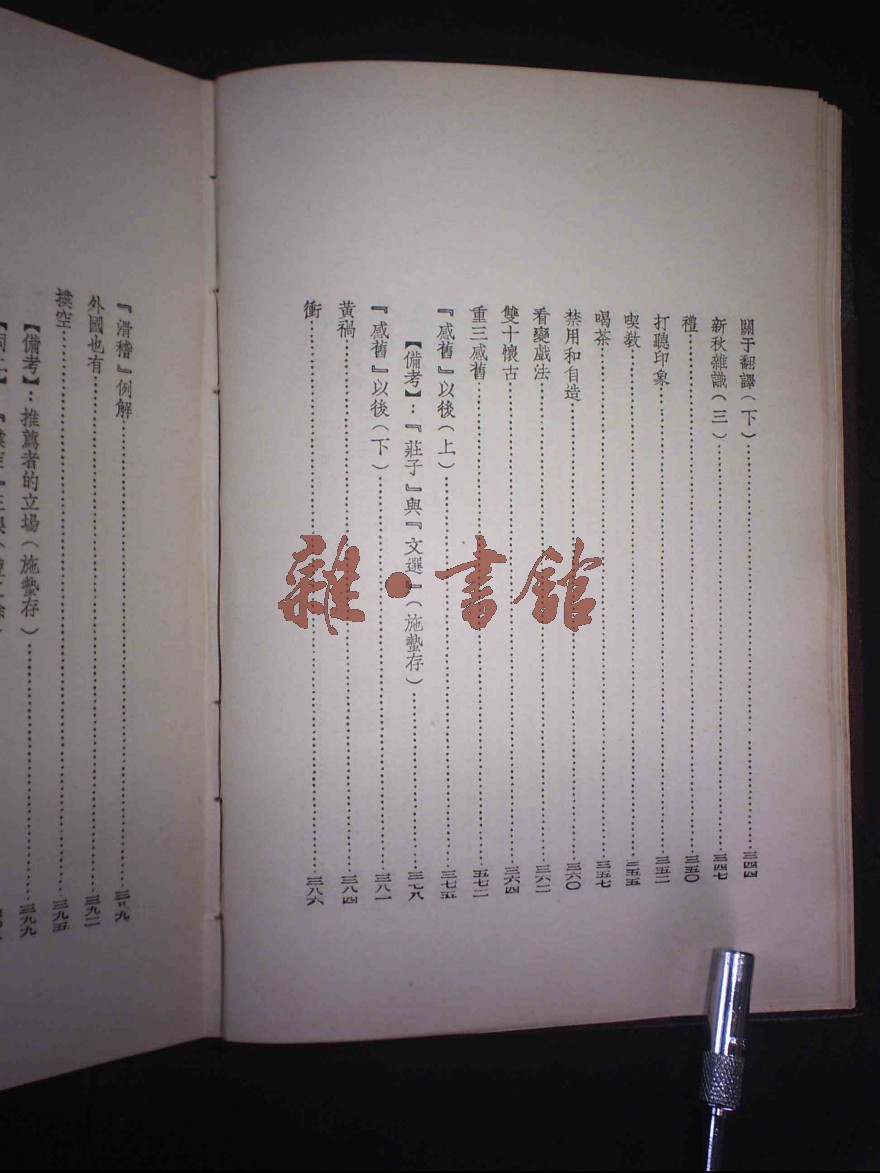 關于翻譯(下)……三四四
新秋雜識(三)……三四七
禮……三五〇
打聽印象……三五二
喫敎……三五五
喝茶……三五七
禁用和自造……三六〇
看變戲法……三六二
雙十懷古……三六四
重三感舊……五七二
『感舊』以後(上)……三七五
【備考】:『莊子』與『文選』(施蟄存)……三七八
『感舊』以後(下)……三八一
黃禍……三八四
衝……三八六
『滑稽』例解……三八九
外國也有……三九二
撲空……三九五
【備考】:推薦者的立場(施蟄存)……三九九
雜·書館